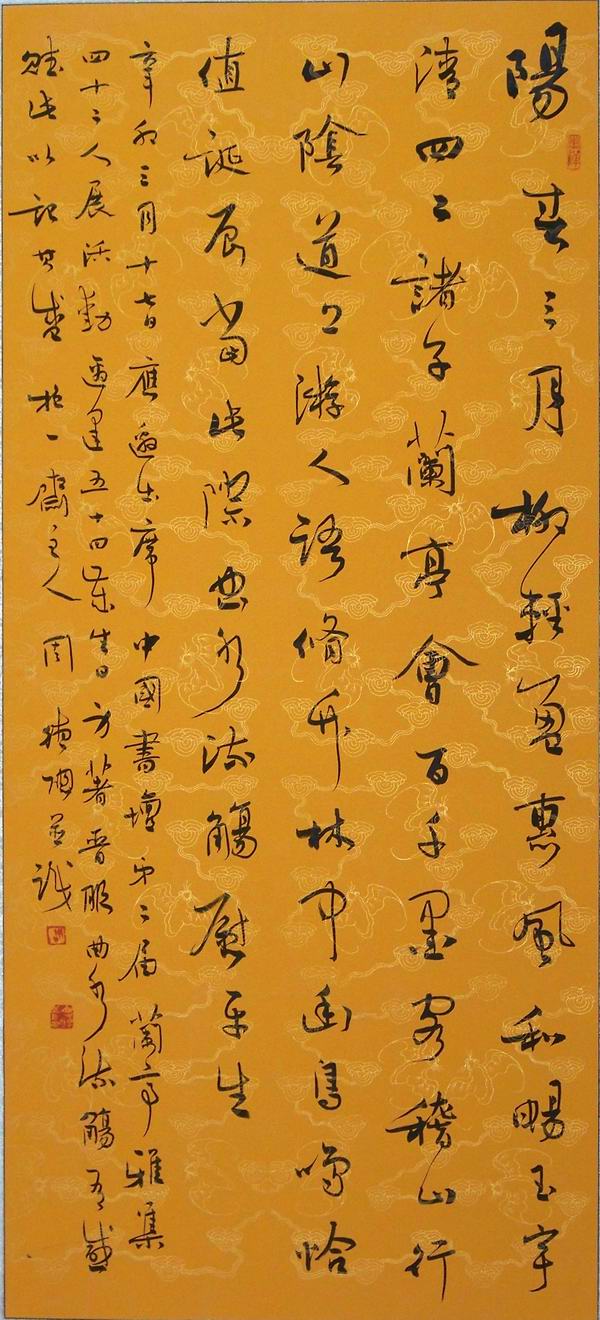 陽春三月柳輕盈惠風和暢玉宇
清四二諸子蘭亭會百千墨客稽山行
山陰道上游人語脩竹林中幽鳥鳴恰
值誕辰當此際曲水流觴慰平生
辛卯三月十七日應邀出席中國書壇第二屆蘭亭雅集
四十二人展活動適逢五十四歲生日方著晉服曲水流觴有感
賦此以記其盛抱一齋主人周並識